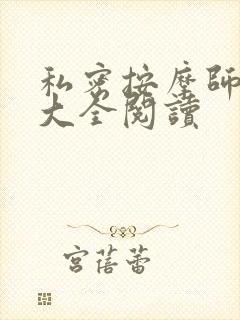 私密按摩師
大全閱讀
宮蓓蕾